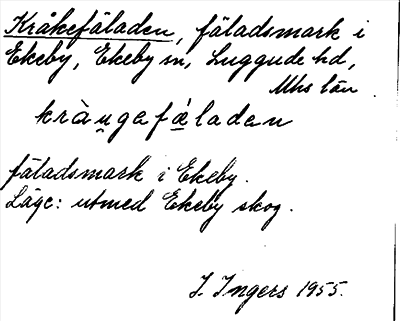 Kråkefäladen, fäladsmark i
Ekeby, Ekeby sn, Luggude hd,
Mhs län
kràu̲gefæ̲̀laden
fäladsmark i Ekeby.
Läge: utmed Ekeby skog.
I. Ingers 1955.